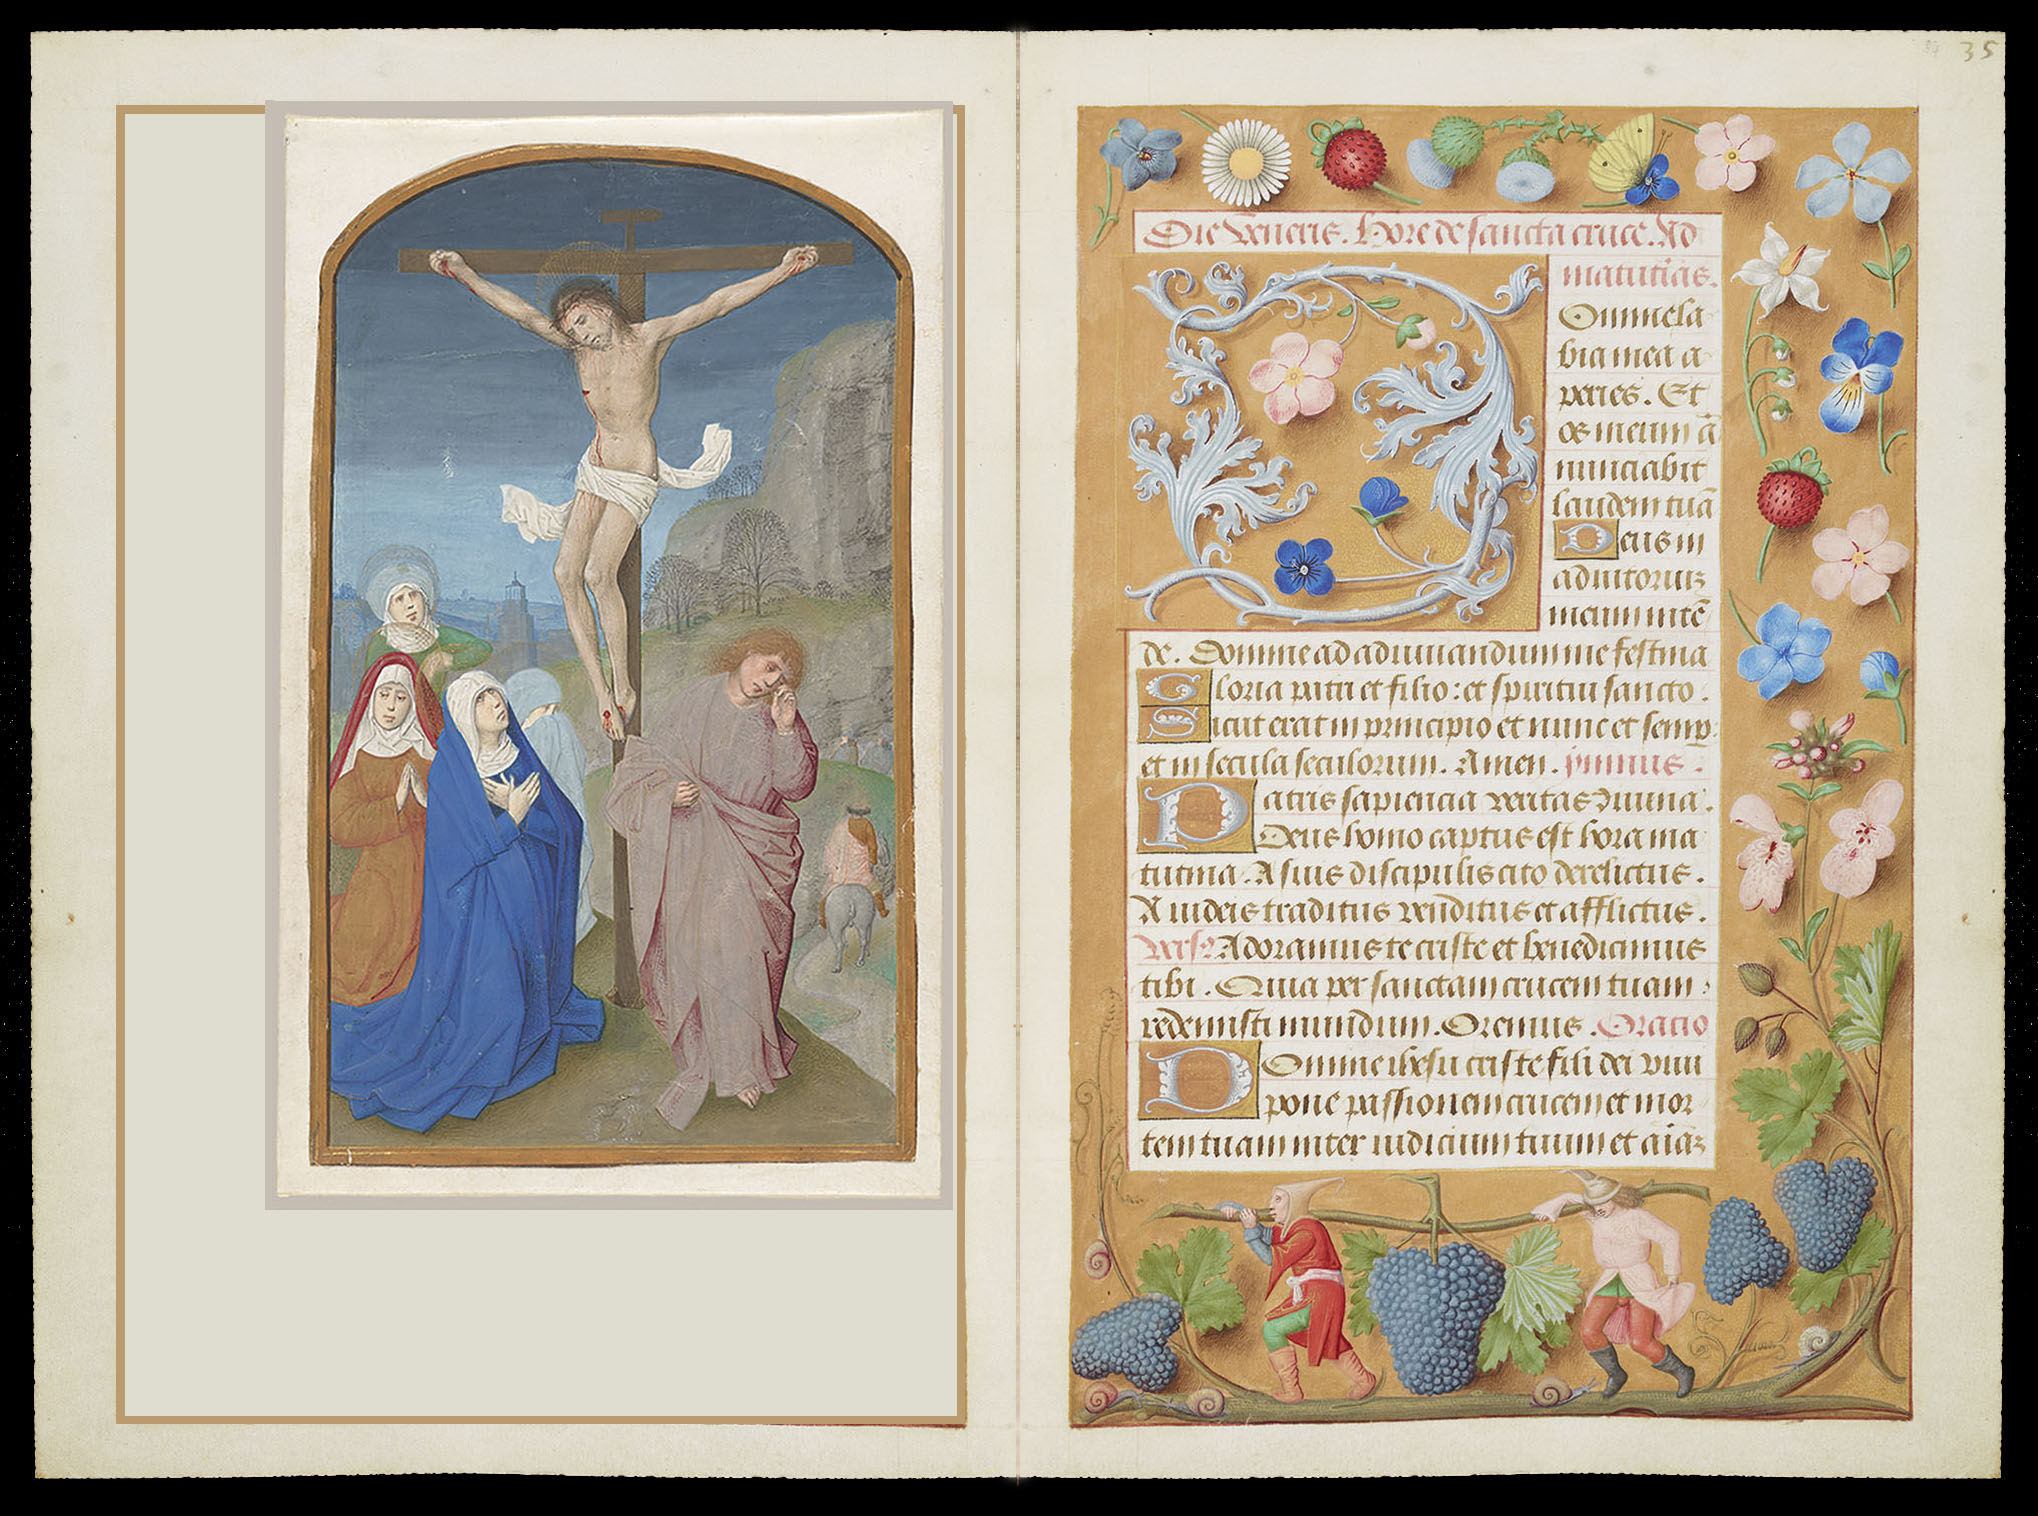 35
Die Veneris. Hore de sancta cruce. Ad
matutinas.
Domine la
bia mea a
peries. Et
os meum ā
nunciabit
laudem tuā
Deus in
adiutoriuz
meum intē
de. Domine ad adiuuandum me festina
Gloria patri et filio: et spiritui sancto.
Sicut erat in principio et nunc et semp:
et in secula seculorum. Amen. ymnus.
Patris sapiencia veritas diuina.
Deus homo captus est hora ma
tutina. A suis discipulis cito derelictus.
A iudeis traditus venditus et afflictus.
vers9 Adoramus te criste et benedicimus
tibi. Quia per sanctam crucem tuam
redemisti mundum. Oremus. Oratio
Domine ihesu criste fili dei viui
pone passionem crucem et mor
tem tuam inter iudicium tuum et aīaz